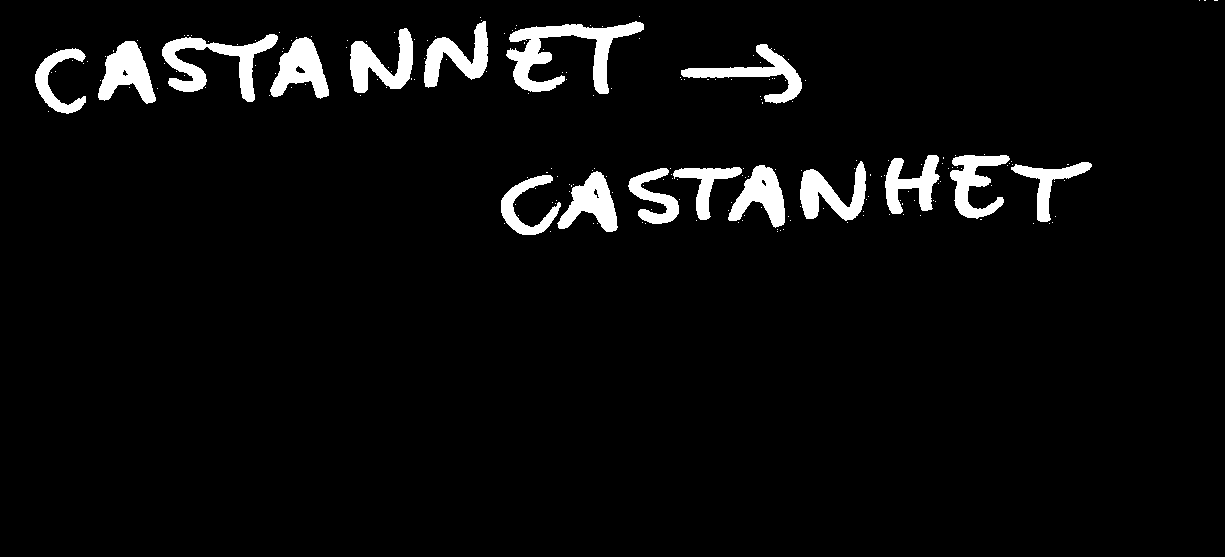 CASTANNET →
CASTANHET